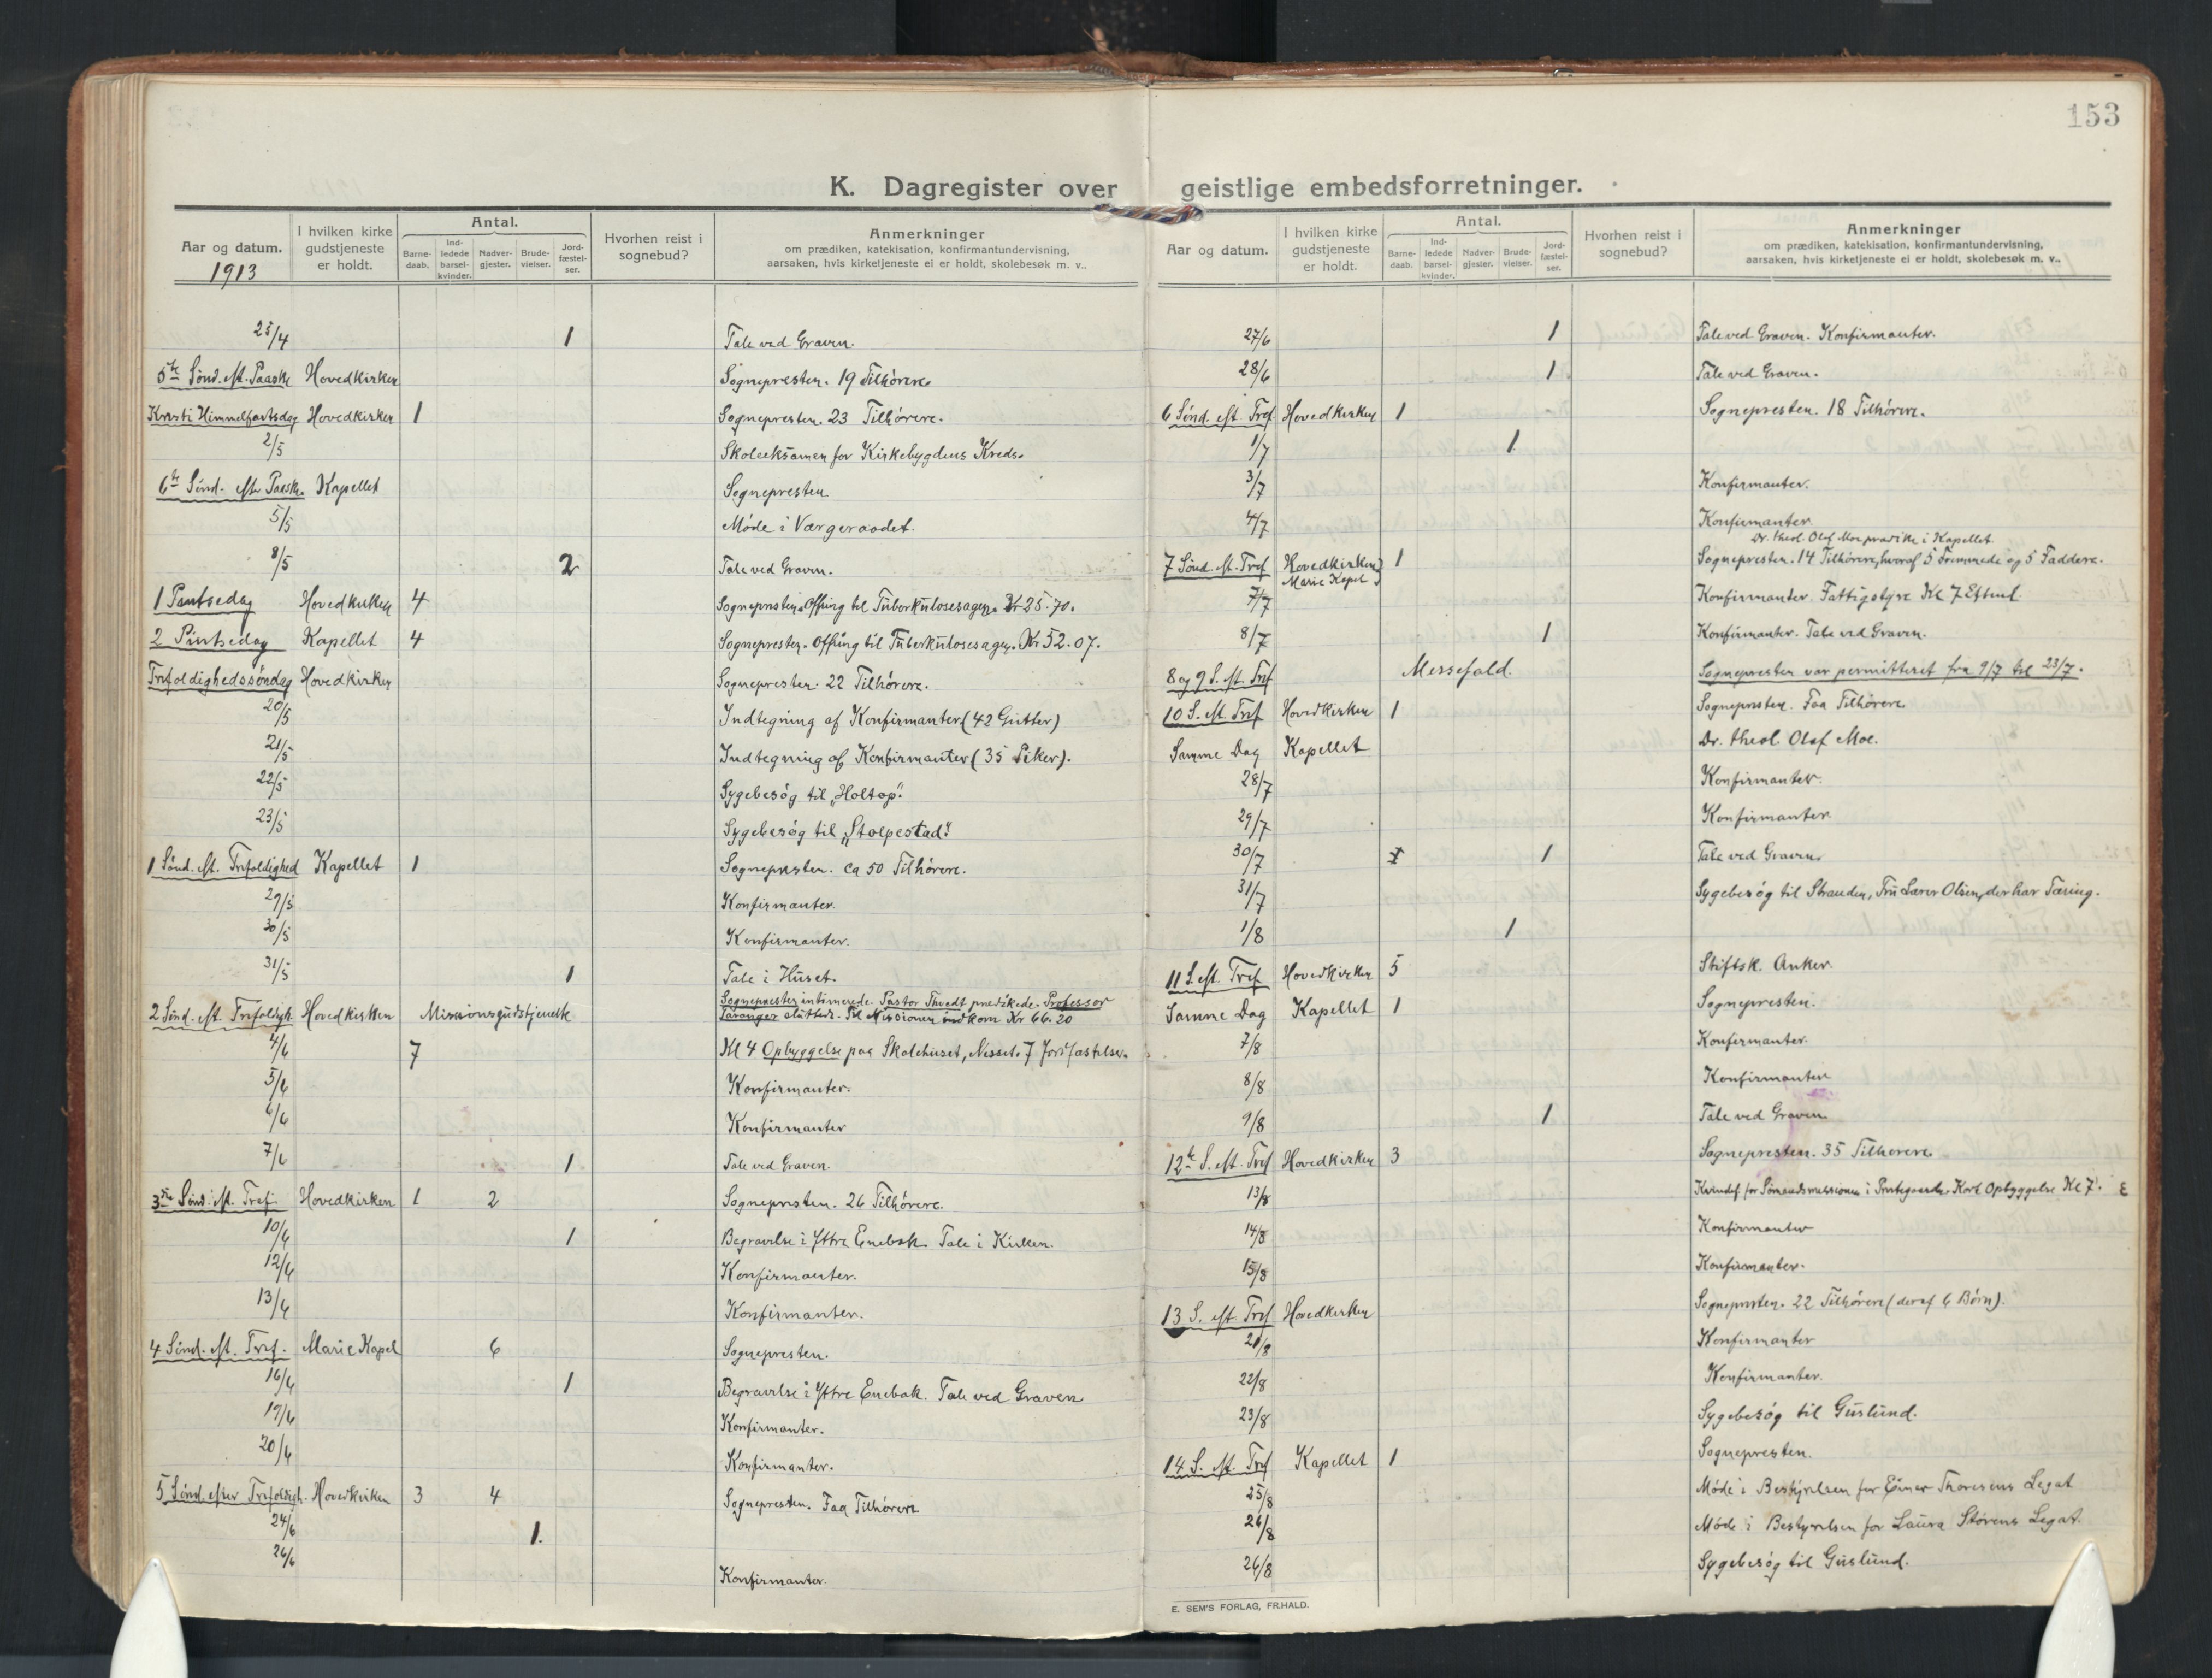 153
K. Dagregister over geistlige embedsforretninger.
Aar og datum.
1913
I hvilken kirke gudstjeneste er holdt.
Antal.
Barne-daab.
Ind-ledede barsel-kvinder.
Nadver-gjester.
Brude-vielser.
Jord-fæstel-ser.
Hvorhen reist i sognebud?
Anmerkninger
om prædiken, katekisation, konfirmantundervisning,
aarsaken, hvis kirketjeneste ei er holdt, skolebesøk m. v..
25/4 1 Tale ved Graven.
5te Sönd. eft. Paaske Hovedkirken Sognepresten. 19 Tilhörere.
Kristi Himmelfartsdag Hovedkirken 1 Sognepresten. 23 Tilhörere.
2/5 Skoleeksamen for Kirkebygdens Kreds.
6te Sönd. efter Paaske. Kapellet Sognepresten
5/5 Möde i Værgeraadet.
8/5 2 Tale ved Graven.
1 Pintsedag Hovedkirken 4 Sognepresten. Offring til Tuberkulosesagen. Kr 25.70.
2 Pintsedag Kapellet 4 Sognepresten. Offring til Tuberkulosesagen. Kr 52.07.
Trefoldighedssöndag Hovedkirken Sognepresten. 22 Tilhörere.
20/5 Indtegning af Konfirmanter (42 Gutter)
21/5 Indtegning af Konfirmanter (35 Piker).
22/5 Sygebesög til „Holtop".
23/5 Sygebesög til „Stolpestad".
1 Sönd. eft. Trefoldighed Kapellet 1 Sognepresten. ca 50 Tilhörere.
29/5 Konfirmanter.
30/5 Konfirmanter.
31/5 1 Tale i Huset.
2 Sönd. eft. Trefoldigh. Hovedkirken Missionsgudstjeneste Sognepresten intimerede. Pastor Thvedt prædikede. Professor
Taranger sluttede. Til Missionen indkom Kr 66.20
4/6 7 Kl 4 Opbyggelse paa Skolehuset, Nesset. 7 Jordfæstelser.
5/6 Konfirmanter.
6/6 Konfirmanter
7/6 1 Tale ved Graven.
3die Sönd. eft. Tref. Hovedkirken 1 2 Sognepresten. 26 Tilhörere.
10/6 1 Begravelse i Yttre Enebak. Tale i Kirken.
12/6 Konfirmanter.
13/6 Konfirmanter.
4 Sönd. eft. Tref. Marie Kapel 6 Sognepresten.
16/6 1 Begravelse i Yttre Enebak. Tale ved Graven
19/6 Konfirmanter.
20/6 Konfirmanter.
5 Sönd. efter Trefoldigh. Hovedkirken 3 4 Sognepresten. Faa Tilhörere
24/6 1.
26/6 Konfirmanter.
Aar og datum.
I hvilken kirke gudstjeneste er holdt.
Antal.
Barne-daab.
Ind-ledede barsel-kvinder.
Nadver-gjester.
Brude-vielser.
Jord-fæstel-ser.
Hvorhen reist i sognebud?
Anmerkninger
om prædiken, katekisation, konfirmantundervisning,
aarsaken, hvis kirketjeneste ei er holdt, skolebesøk m. v..
27/6 1 Tale ved Graven. Konfirmanter.
28/6 1 Tale ved Graven.
6 Sönd. eft. Tref Hovedkirken 1 Sognepresten. 18 Tilhörere.
1/7 1.
3/7 Konfirmanter.
4/7 Konfirmanter.
Dr. theol. Olaf Moe prædike i Kapellet.
7 Sönd. eft. Tref Hovedkirken 1 Sognepresten. 14 Tilhörere, hvoraf 5 Fremmede og 5 Faddere.
Marie Kapel
7/7 Konfirmanter. Fattigstyre Kl 7 Efterm.
8/7 1 Konfirmanter. Tale ved Graven.
8 og 9 S. eft. Tref Messefald. Sognepresten var permitteret fra 9/7 til 23/7.
10 S. eft. Tref Hovedkirken 1 Sognepresten. Faa Tilhörere
Samme Dag Kapellet Dr. theol. Olaf Moe.
28/7 Konfirmanter.
29/7 Konfirmanter.
30/7 1 Tale ved Graven.
31/7 Sygebesög til Stranden, Fru Lærer Olsen, der har Tæring.
1/8 1
11 S. eft. Tref Hovedkirken 5 Stiftsk. Anker.
Samme Dag Kapellet 1 Sognepresten.
7/8 Konfirmanter.
8/8 Konfirmanter
9/8 1 Tale ved Graven
12te S. eft. Tref Hovedkirken 3 Sognepresten. 35 Tilhörere.
13/8 Kvindef. for Sömandsmissionen i Prestegaarden. Kort Opbyggelse Kl 7.
14/8 Konfirmanter
15/8 Konfirmanter.
13 S. eft Tref Hovedkirken Sognepresten. 22 Tilhörere (deraf 6 Börn).
21/8 Konfirmanter
22/8 Konfirmanter.
23/8 Sygebesög til Guslund.
14 S. eft. Tref Kapellet 1 Sognepresten.
25/8 Möde i Bestyrelsen for Einer Thoresens Legat
26/8 Möde i Bestyrelsen for Laura Störens Legat.
26/8 Sygebesög til Guslund.
E. SEM'S FORLAG, FR.HALD.